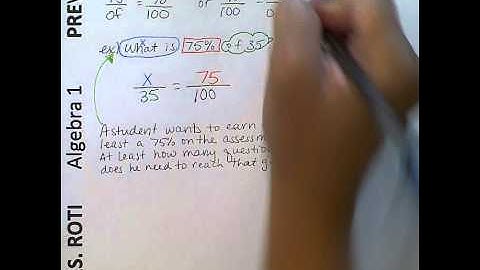 is
of = 100 or 100
ex) What is 75% of 35
x/35 = 75/100
A student wants to earn
least a 75% on the assessm
At least how many question
does he need to reach that g
S. ROTI Algebra 1 PREV